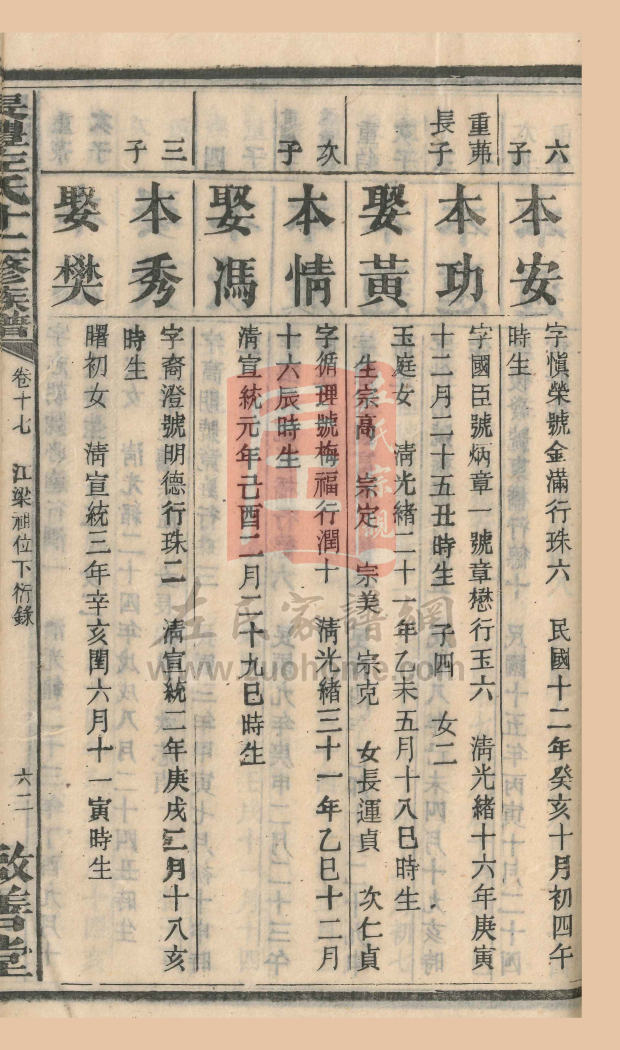 六子
本安
字慎榮號金滿行珠六 民國十二年癸亥十月初四午
時生
重茀長子
本功
字國臣號炳章一號章懋行玉六 淸光緒十六年庚寅
十二月二十五丑時生 子四 女二
娶黃
玉庭女 淸光緒二十一年乙未五月十八巳時生
生宗高 宗定 宗美 宗克 女長運貞 次仁貞
次子
本情
字循理號梅福行潤十 淸光緒三十一年乙巳十二月
十六辰時生
娶馮
淸宣統元年己酉二月二十九巳時生
三子
本秀
字裔澄號明德行珠二 淸宣統二年庚戌二月十八亥
時生
娶樊
曙初女 淸宣統三年辛亥閏六月十一寅時生
左氏十二修族譜
卷十七 江梁祖位下衍錄
六二
敦善堂
左氏宗親
左氏家譜網
www.zuohome.com